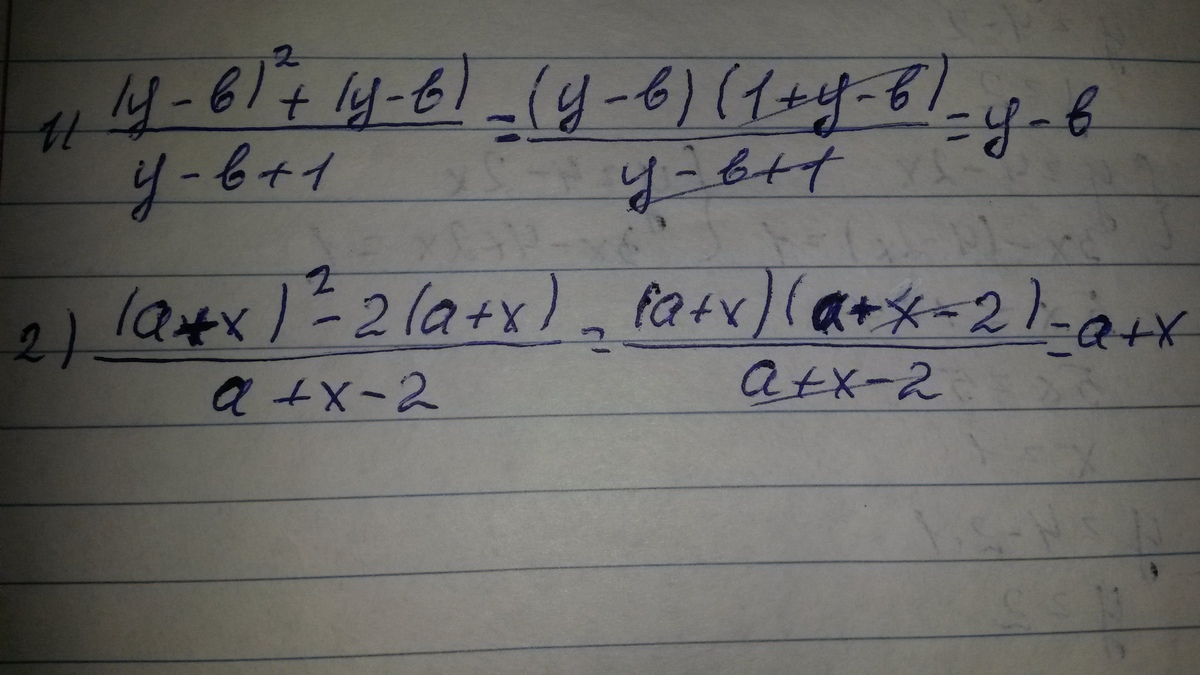 1) ((y-в)²+(y-в))/(y-в+1) = ((y-в)(1+y-в))/(y-в+1) = y-в
2) ((a+x)²-2(a+x))/(a+x-2) = ((a+x)(a+x-2))/(a+x-2) = a+x